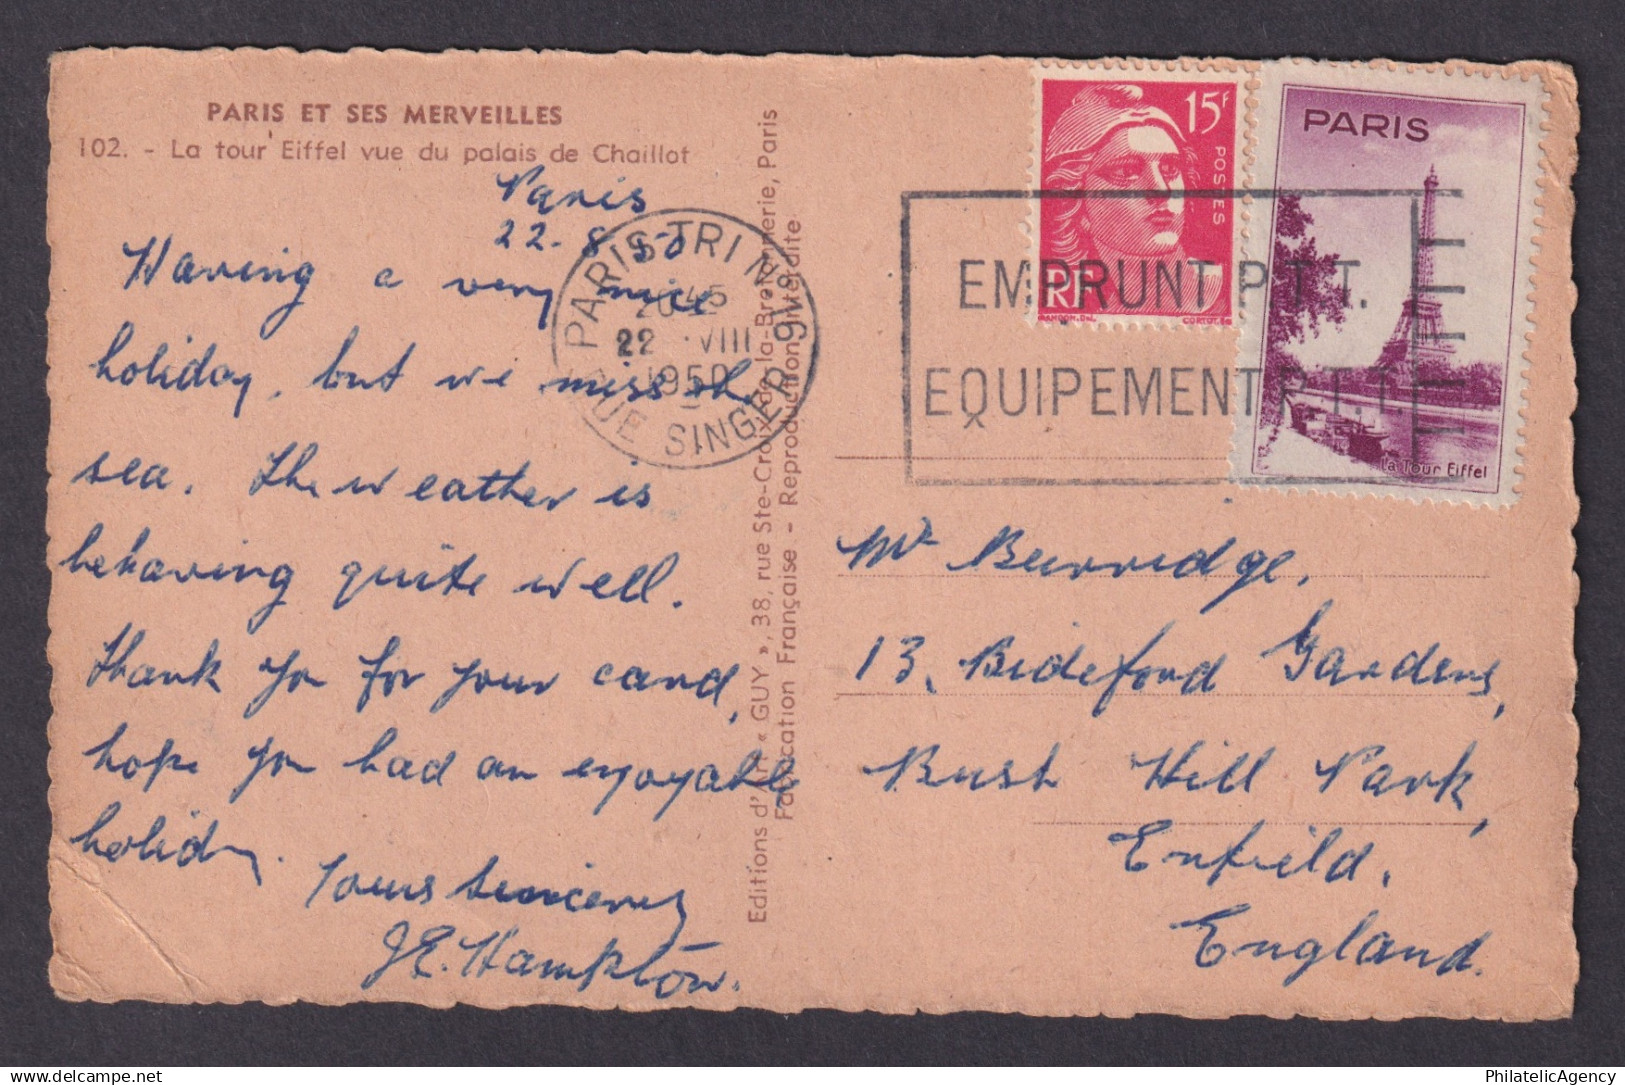 PARIS ET SES MERVEILLES
102. - La tour Eiffel vue du palais de Chaillot
Paris
22. 8. 50
Having a very nice
holiday, but we miss the
sea. The weather is
behaving quite well.
Thank you for your card,
hope you had an enjoyable
holiday.
Yours sincerely
J.E. Hampton.
PARIS TRI N°
45
22 VIII
1950
RUE SINGER 9V8I6
Editions d'Art « GUY », 38, rue Ste-Croix-de-la-Bretonnerie, Paris
Fabrication Française - Reproduction Interdite
15F
POSTES
RF
GANDON.DEL
CORTOT.SC
PARIS
La Tour Eiffel
EMPRUNT P.T.T.
EQUIPEMENT P.T.T.
Mr Burridge.
13, Bideford Gardens,
Bush Hill Park,
Enfield.
England.
PhilatelicAgency